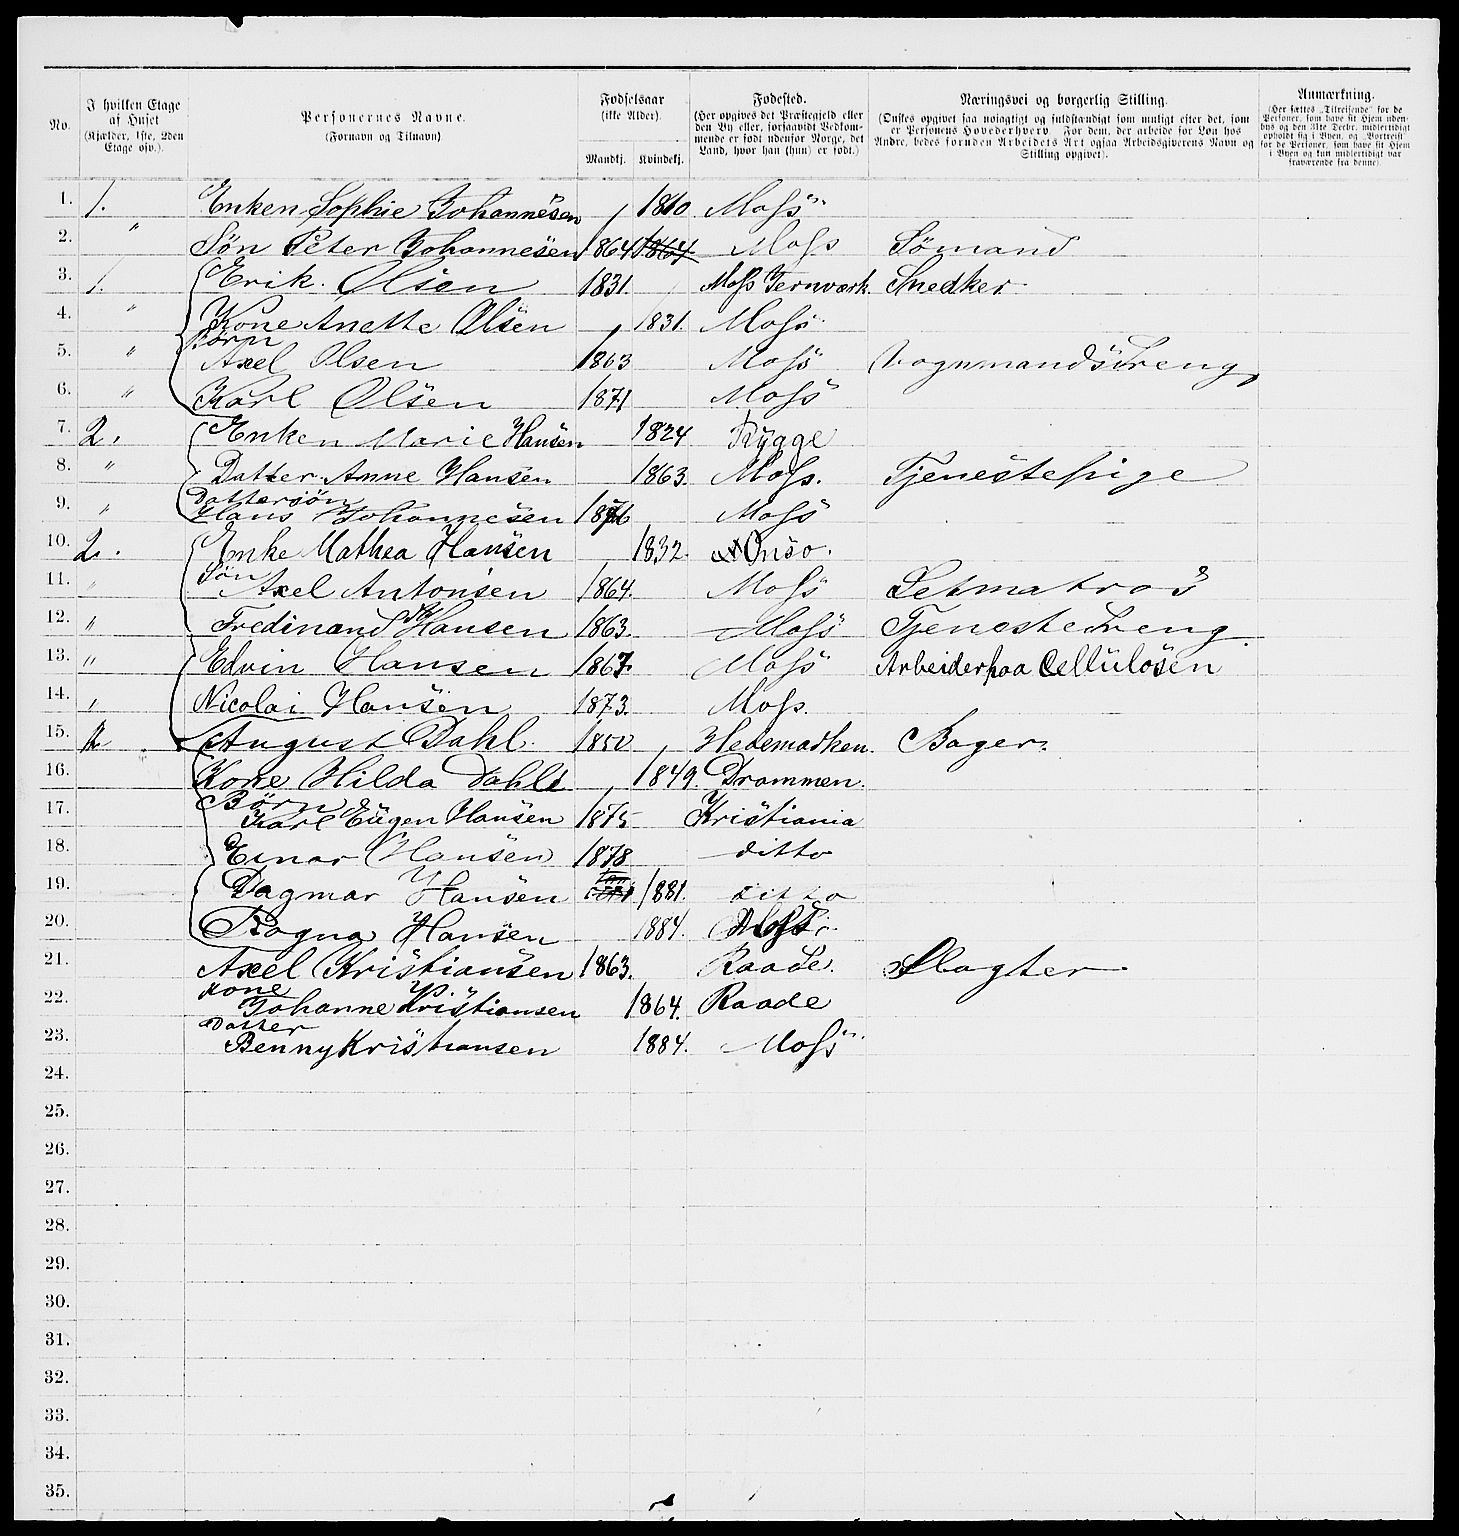 No. I hvilken Etage af Huset (Kjælder, 1ste, 2den Etage osv.). Personernes Navne. (Fornavn og Tilnavn). Fødselsaar (ikke Alder). Mandkj. Kvindekj. Fødested. (Her opgives det Præstegjeld eller den By eller, forsaavidt Vedkommende er født udenfor Norge, det Land, hvor han (hun) er født.) Næringsvei og borgerlig Stilling. (Ønskes opgivet saa nøiagtigt og fuldstændigt som muligt efter det, som er Personens Hovederhverv. For dem, der arbeide for Løn hos Andre, bedes foruden Arbeidets Art ogsaa Arbeidsgiverens Navn og Stilling opgivet). Anmærkning. (Her sættes „Tilreisende" for de Personer, som have sit Hjem udenbys og den 31te Decbr. midlertidigt opholdt sig i Byen, og „Bortreist" for de Personer, som have sit Hjem i Byen og kun midlertidigt var fraværende fra denne).
1. 1. Enken Sophie Johannesen 1810 Moss
2. " Søn Peter Johannesen 1864 1864 Moss Sømand
3. 1. Erik Olsen 1831. Moss Jernværk. Snedker
4. " Kone Anette Olsen 1831. Moss
Børn
5. " Axel Olsen 1863 Moss Vognmandsdreng
6. " Karl Olsen 1871 Moss
7. 2. Enken Marie Hansen 1824 Rygge
8. " Datter Anne Hansen 1863. Moss. Tjenestepige
Dattersøn
9. " Hans Johannesen 1876 Moss
10. 2. Enke Mathea Hansen 1832. Onsø.
Søn
11. " Axel Antonsen 1864. Moss Letmatros
12. " Ferdinand Hansen 1863. Moss Tjenestedreng
13. " Edvin Hansen 1867. Moss Arbeider paa Cellulosen
14. " Nicolai Hansen 1873. Moss.
15. 2. August Dahl. 1850 Hedemarken. Bager.
16. Kone Hilda Dahl 1849. Drammen.
Børn
17. Karl Eugen Hansen 1875 Kristiania
18. Einar Hansen 1878 ditto
19. Dagmar Hansen 1881. ditto
20. Ragna Hansen 1884. Moss.
21. Axel Kristiansen 1863. Raade. Slagter
Kone
22. Johanne Kristiansen 1864. Raade
Datter
23. Benny Kristiansen 1884. Moss
24.
25.
26.
27.
28.
29.
30.
31.
32.
33.
34.
35.